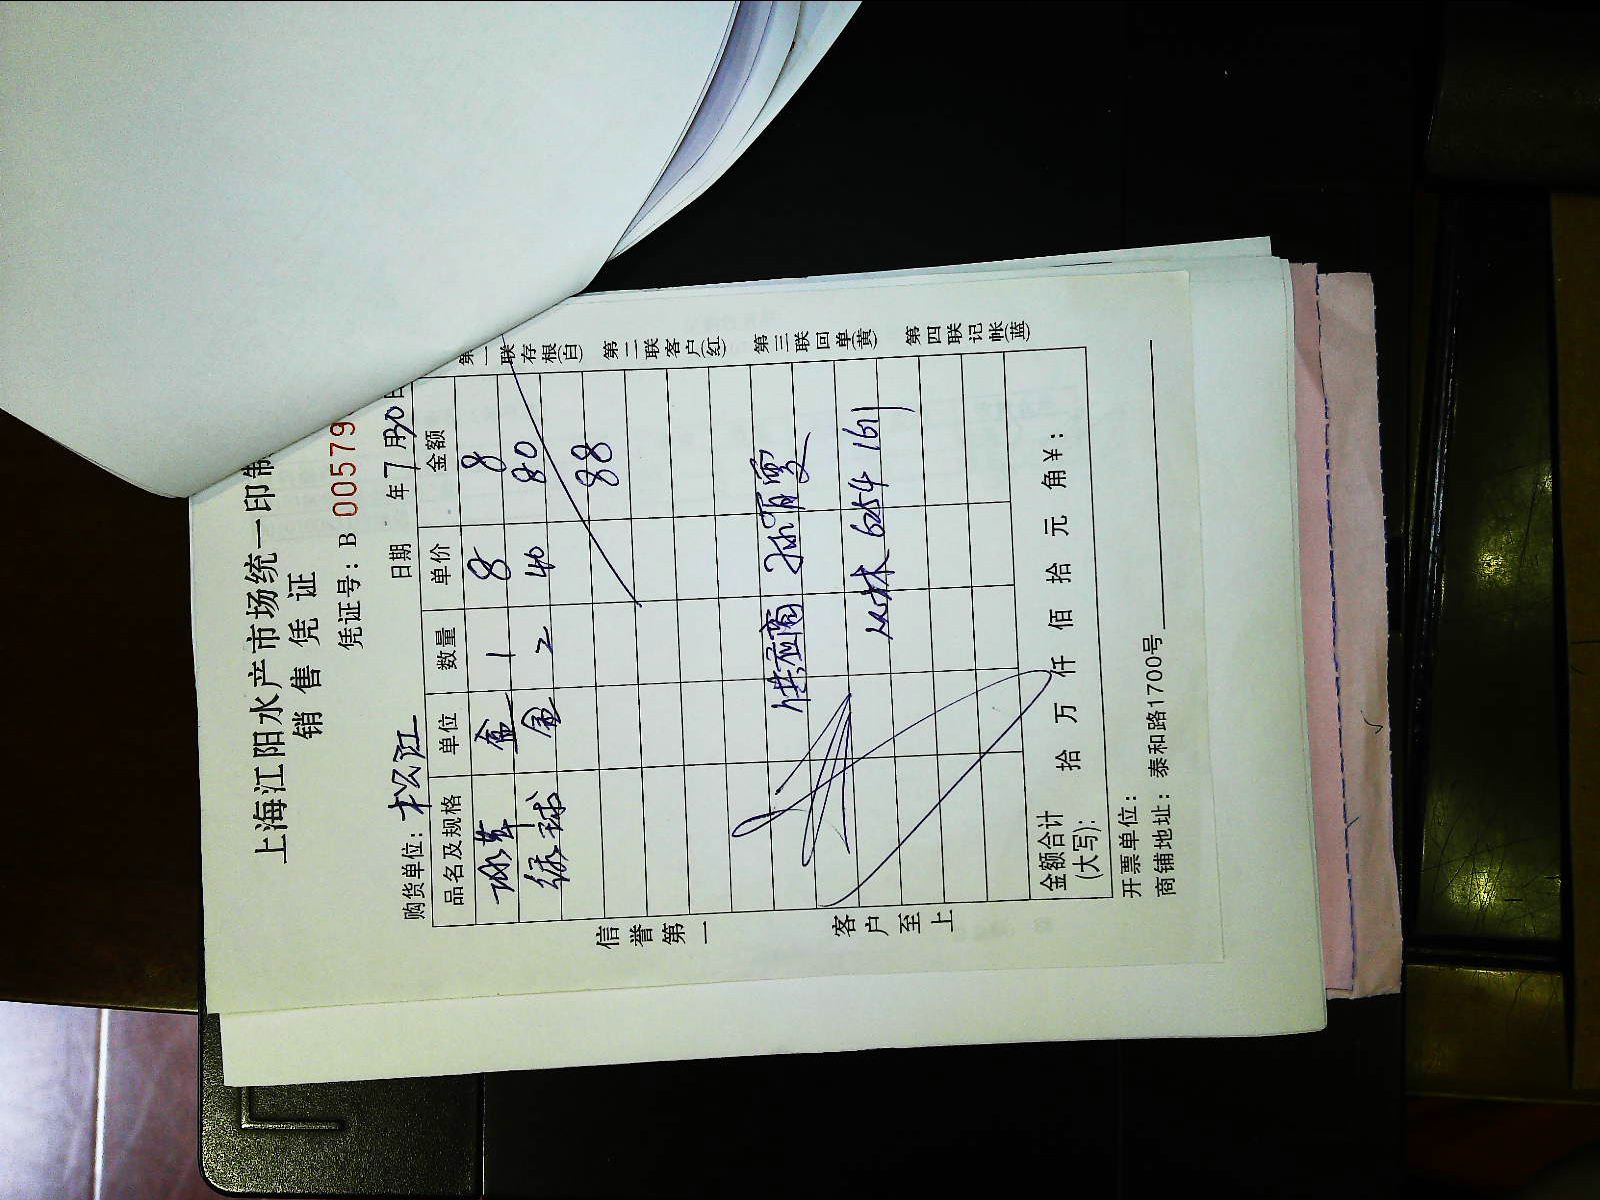 上海江阳水产市场统一印制
销售凭证
凭证号: B 00579
购货单位: 松江 日期 年7月30日
品名及规格 单位 数量 单价 金额
盒 1 8 8
绿球 盒 2 40 80
88
供应商
丛林 6254 1611
金额合计(大写): 拾 万 仟 佰 拾 元 角 ¥:
开票单位:
商铺地址: 泰和路1700号
信誉第一 客户至上
第一联存根(白) 第二联客户(红) 第三联回单(黄) 第四联记帐(蓝)